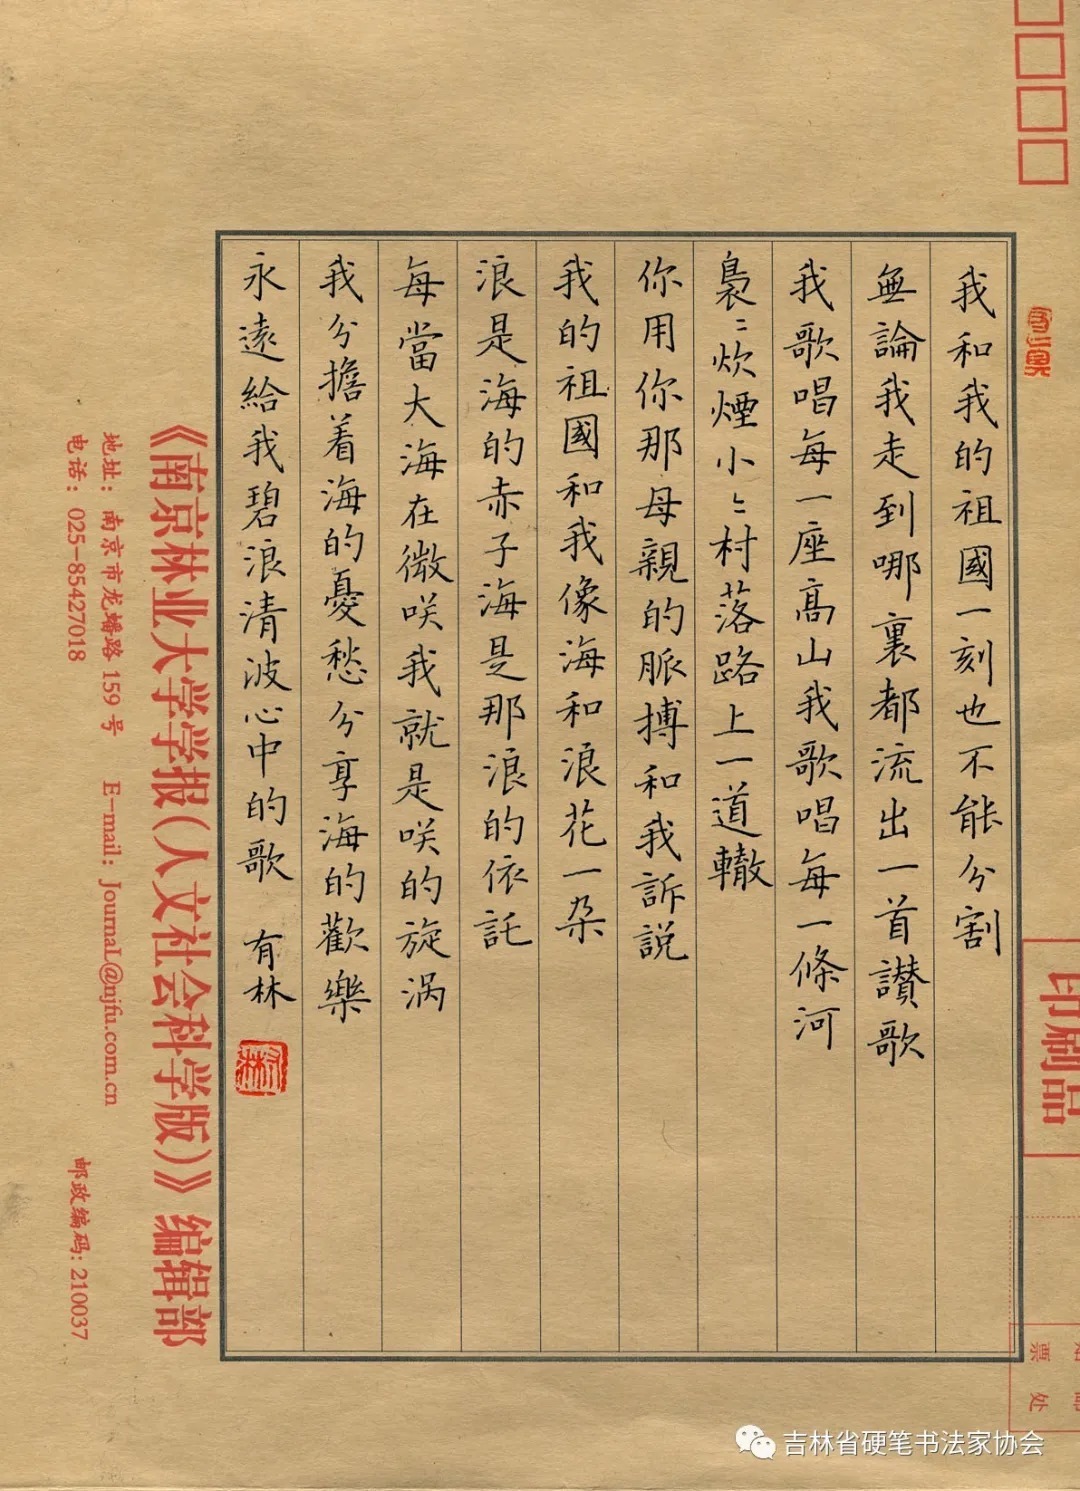 我和我的祖國一刻也不能分割
無論我走到哪裏都流出一首讃歌
我歌唱每一座高山我歌唱每一條河
裊〻炊煙小〻村落路上一道轍
你用你那母親的脈搏和我訴説
我的祖國和我像海和浪花一朵
浪是海的赤子海是那浪的依託
每當大海在微咲我就是咲的旋涡
我分擔着海的憂愁分享海的歡樂
永遠給我碧浪清波心中的歌 有林
印刷品
票处
《南京林业大学学报(人文社会科学版)》编辑部
地址: 南京市龙蟠路 159 号 E-mail: JournaL@njfu.com.cn
电话: 025-85427018 邮政编码: 210037
吉林省硬笔书法家协会